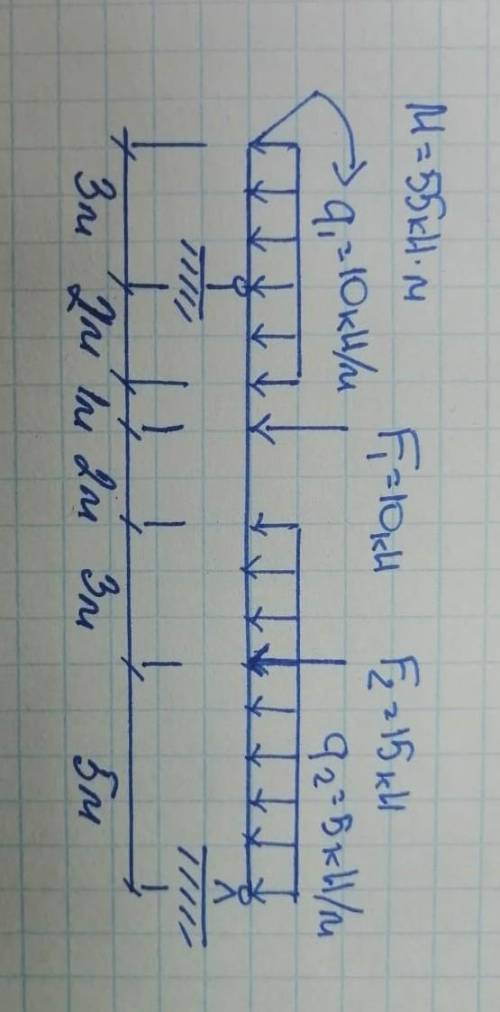 M = 55 кН·м
q₁ = 10 кН/м
F₁ = 10 кН
F₂ = 15 кН
q₂ = 5 кН/м
3м 2м 1м 2м 3м 5м